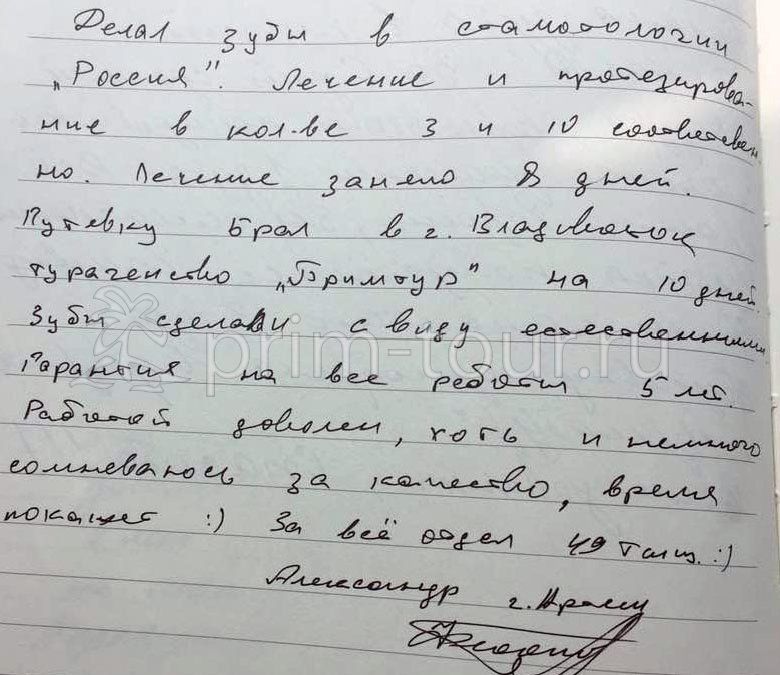 Делал зубы в стамотологии
„Россия". Лечение и протезирова-
ние в кол-ве 3 и 10 соответствен
но. Лечение заняло 8 дней.
Путёвку брал в г. Владивосток
турагенство „Примтур" на 10 дней.
Зубы сделали с виду естественными
prim-tour.ru
Гарантия на все работы 5 лет.
Работой доволен, хоть и немного
сомневаюсь за качество, время
покажет :) За всё отдал 49 тыщ. :)
Александр г.